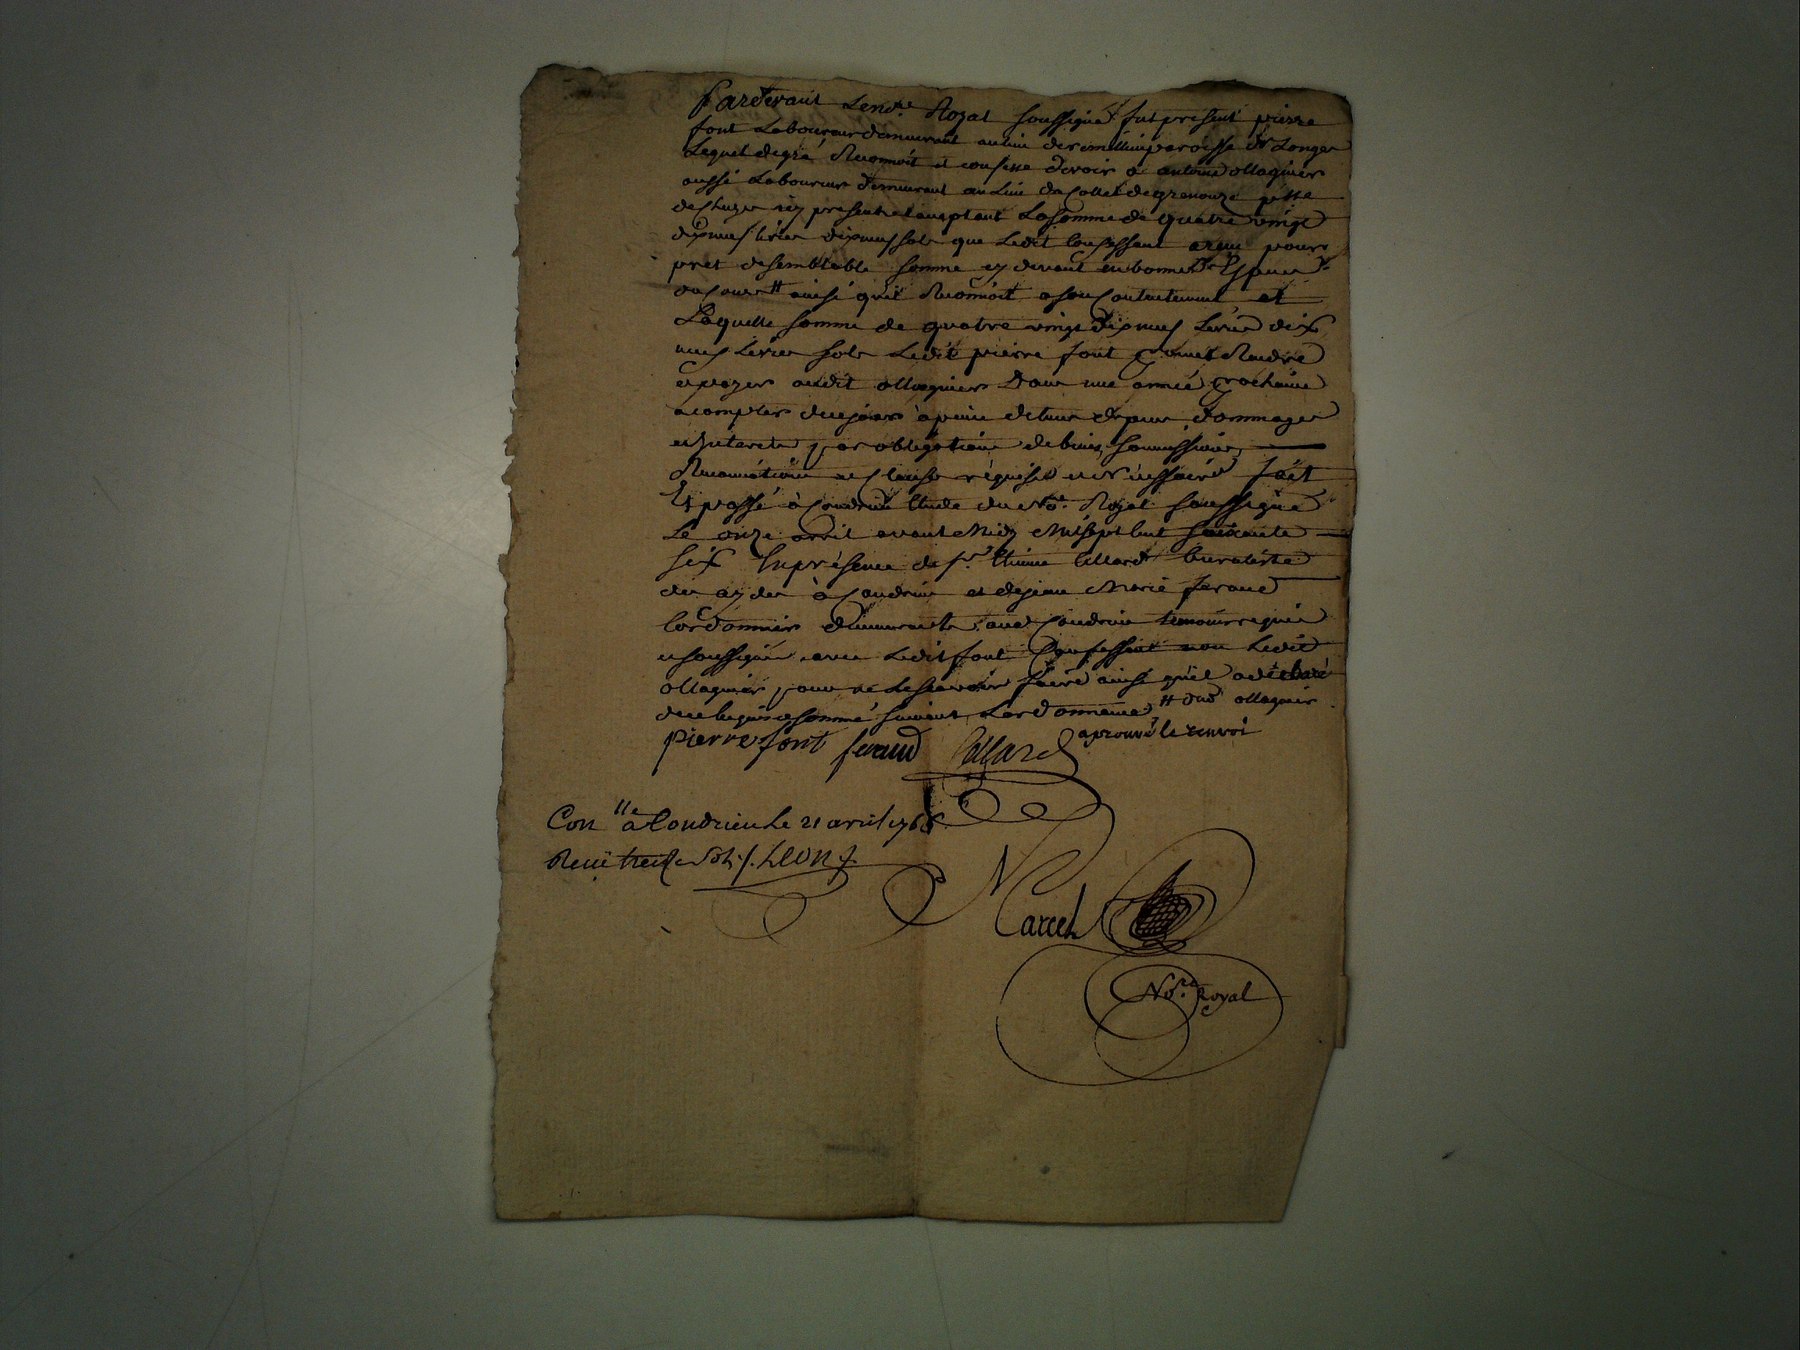 Pardevant Le not.re Royal soussigné fut présent pierre
font Laboureur demeurant au lieu de remillieu paroisse de Longes
Lequel de gré Reconnoit et confesse devoir a antoine ollagnier
aussi Laboureur demeurant au Lieu du Collet de grenouze psse
de icy present et acceptant La somme de quatre vingt
dixneuf livres dixneuf sols que Ledit Confessant a reçu pour
pret de semblable somme cy devant en bonnes Especes
du cours # ainsi qu'il Reconnoit a son Contentement et
Laquelle somme de quatre vingt dixneuf Livres dix
neuf Livres sols Ledit pierre font promet Rendre
et payer audit ollagnier Dans une année prochaine
a compter de ce jour à peine de tous depens, dommages
et Interets par obligation de biens, soumissions,
Renonciations et clauses requises et nécessaires fait
Et passé à Condrieu Etude du No.re Royal soussigné
Le onze avril avant Midy Mil sept Cent soixante
six En présence de s.r Etienne Allard buraliste
des aydes à Condrieu et de jean Marie feraud
Cordonnier demeurants aud Condrieu temoins requis
et soussignés avec Ledit font Confessant non Ledit
ollagnier pour ne le scavoir faire ainsi qu'il a déclaré
de ce enquis et sommé suivant Lordonnance # dud ollagnier
aprouvé le renvoi
pierre font feraud Allard
Con.lle a Condrieu Le 21 avril 1766
Recu treize sols /. LEON /.
Marcel
No.re Royal